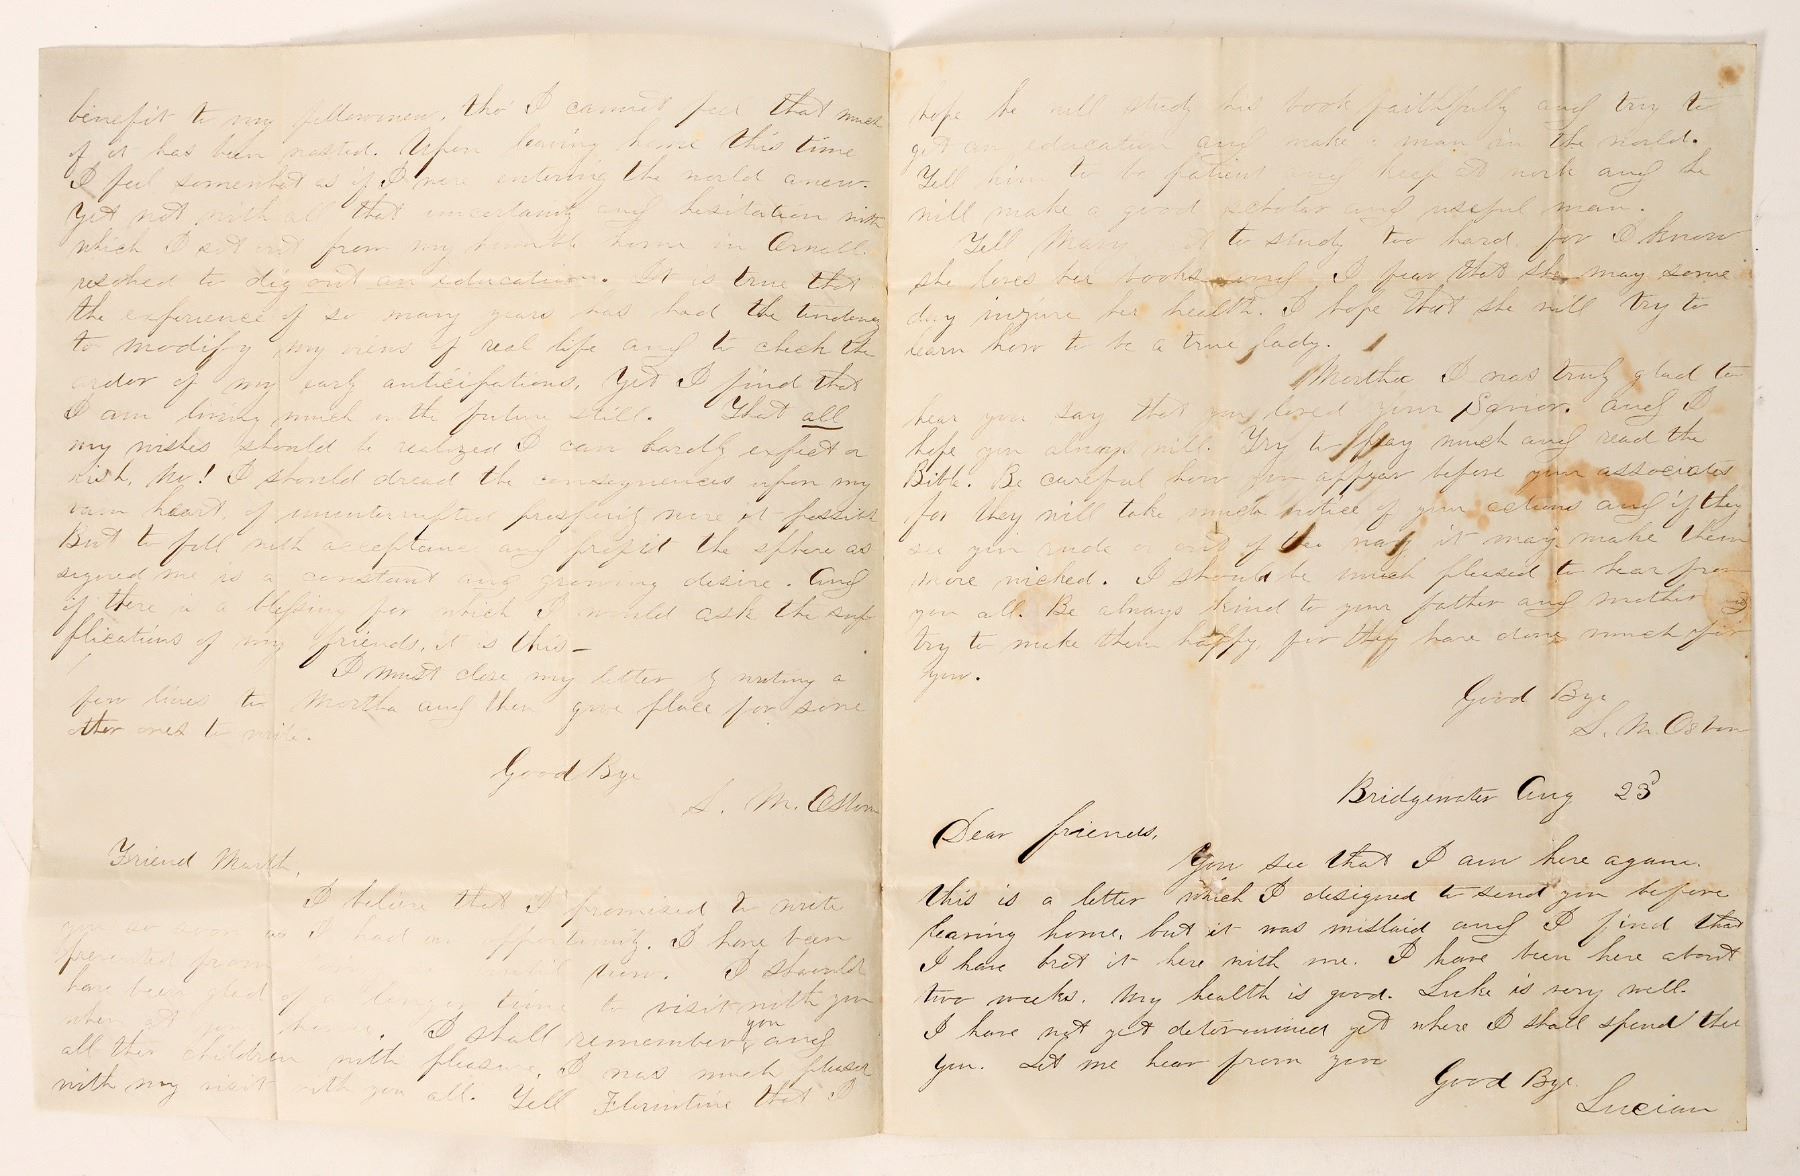 benefit to my fellowmen, tho' I cannot feel that much
of it has been wasted. Upon leaving home this time
I feel somewhat as if I were entering the world anew.
Yet not with all that uncertainty and hesitation with
which I set out from my humble home in
resolved to dig out an education. It is true that
the experience of so many years has had the tendency
to modify my views of real life and to check the
ardor of my early anticipations, Yet I find that
I am living much in the future still. That all
my wishes should be realized I can hardly expect or
wish, No! I should dread the consequences upon my
vain heart, of uninterrupted prosperity were it possible
But to fill with acceptance and profit the sphere as
signed me is a constant and growing desire. And
if there is a blessing for which I would ask the sup
plications of my friends, it is this—
I must close my letter by writing a
few lines to Martha and then give place for some
other ones to write.
Good Bye
S. M. Osborn
Friend Marth,
I believe that I promised to write
you as soon as I had an opportunity. I have been
prevented from until now. I should
have been glad of a longer time to visit with you
when at your house. I shall remember you and
all the children with pleasure, I was much pleased
with my visit with you all. Tell Florentine that I
hope he will study his book faithfully and try to
get an education and make a man in the world.
Tell him to be patient and keep at work and he
will make a good scholar and useful man.
Tell Mary not to study too hard, for I know
she loves her books and I fear that she may some
day injure her health. I hope that she will try to
learn how to be a true lady.
Martha I was truly glad to
hear you say that you loved your Savior. and I
hope you always will. Try to pray much and read the
Bible. Be careful how you appear before your associates
for they will take much notice of your actions and if they
see you rude or out of the way, it may make them
more wicked. I should be much pleased to hear from
you all. Be always kind to your father and mother and
try to make them happy, for they have done much for
you.
Good Bye
S. M. Osborn
Bridgewater Aug 23
Dear friends,
You see that I am here again.
this is a letter which I designed to send you before
leaving home, but it was mislaid and I find that
I have brot it here with me. I have been here about
two weeks. My health is good. Luke is very well.
I have not yet determined yet where I shall spend the
year. Let me hear from you
Good Bye.
Lucian